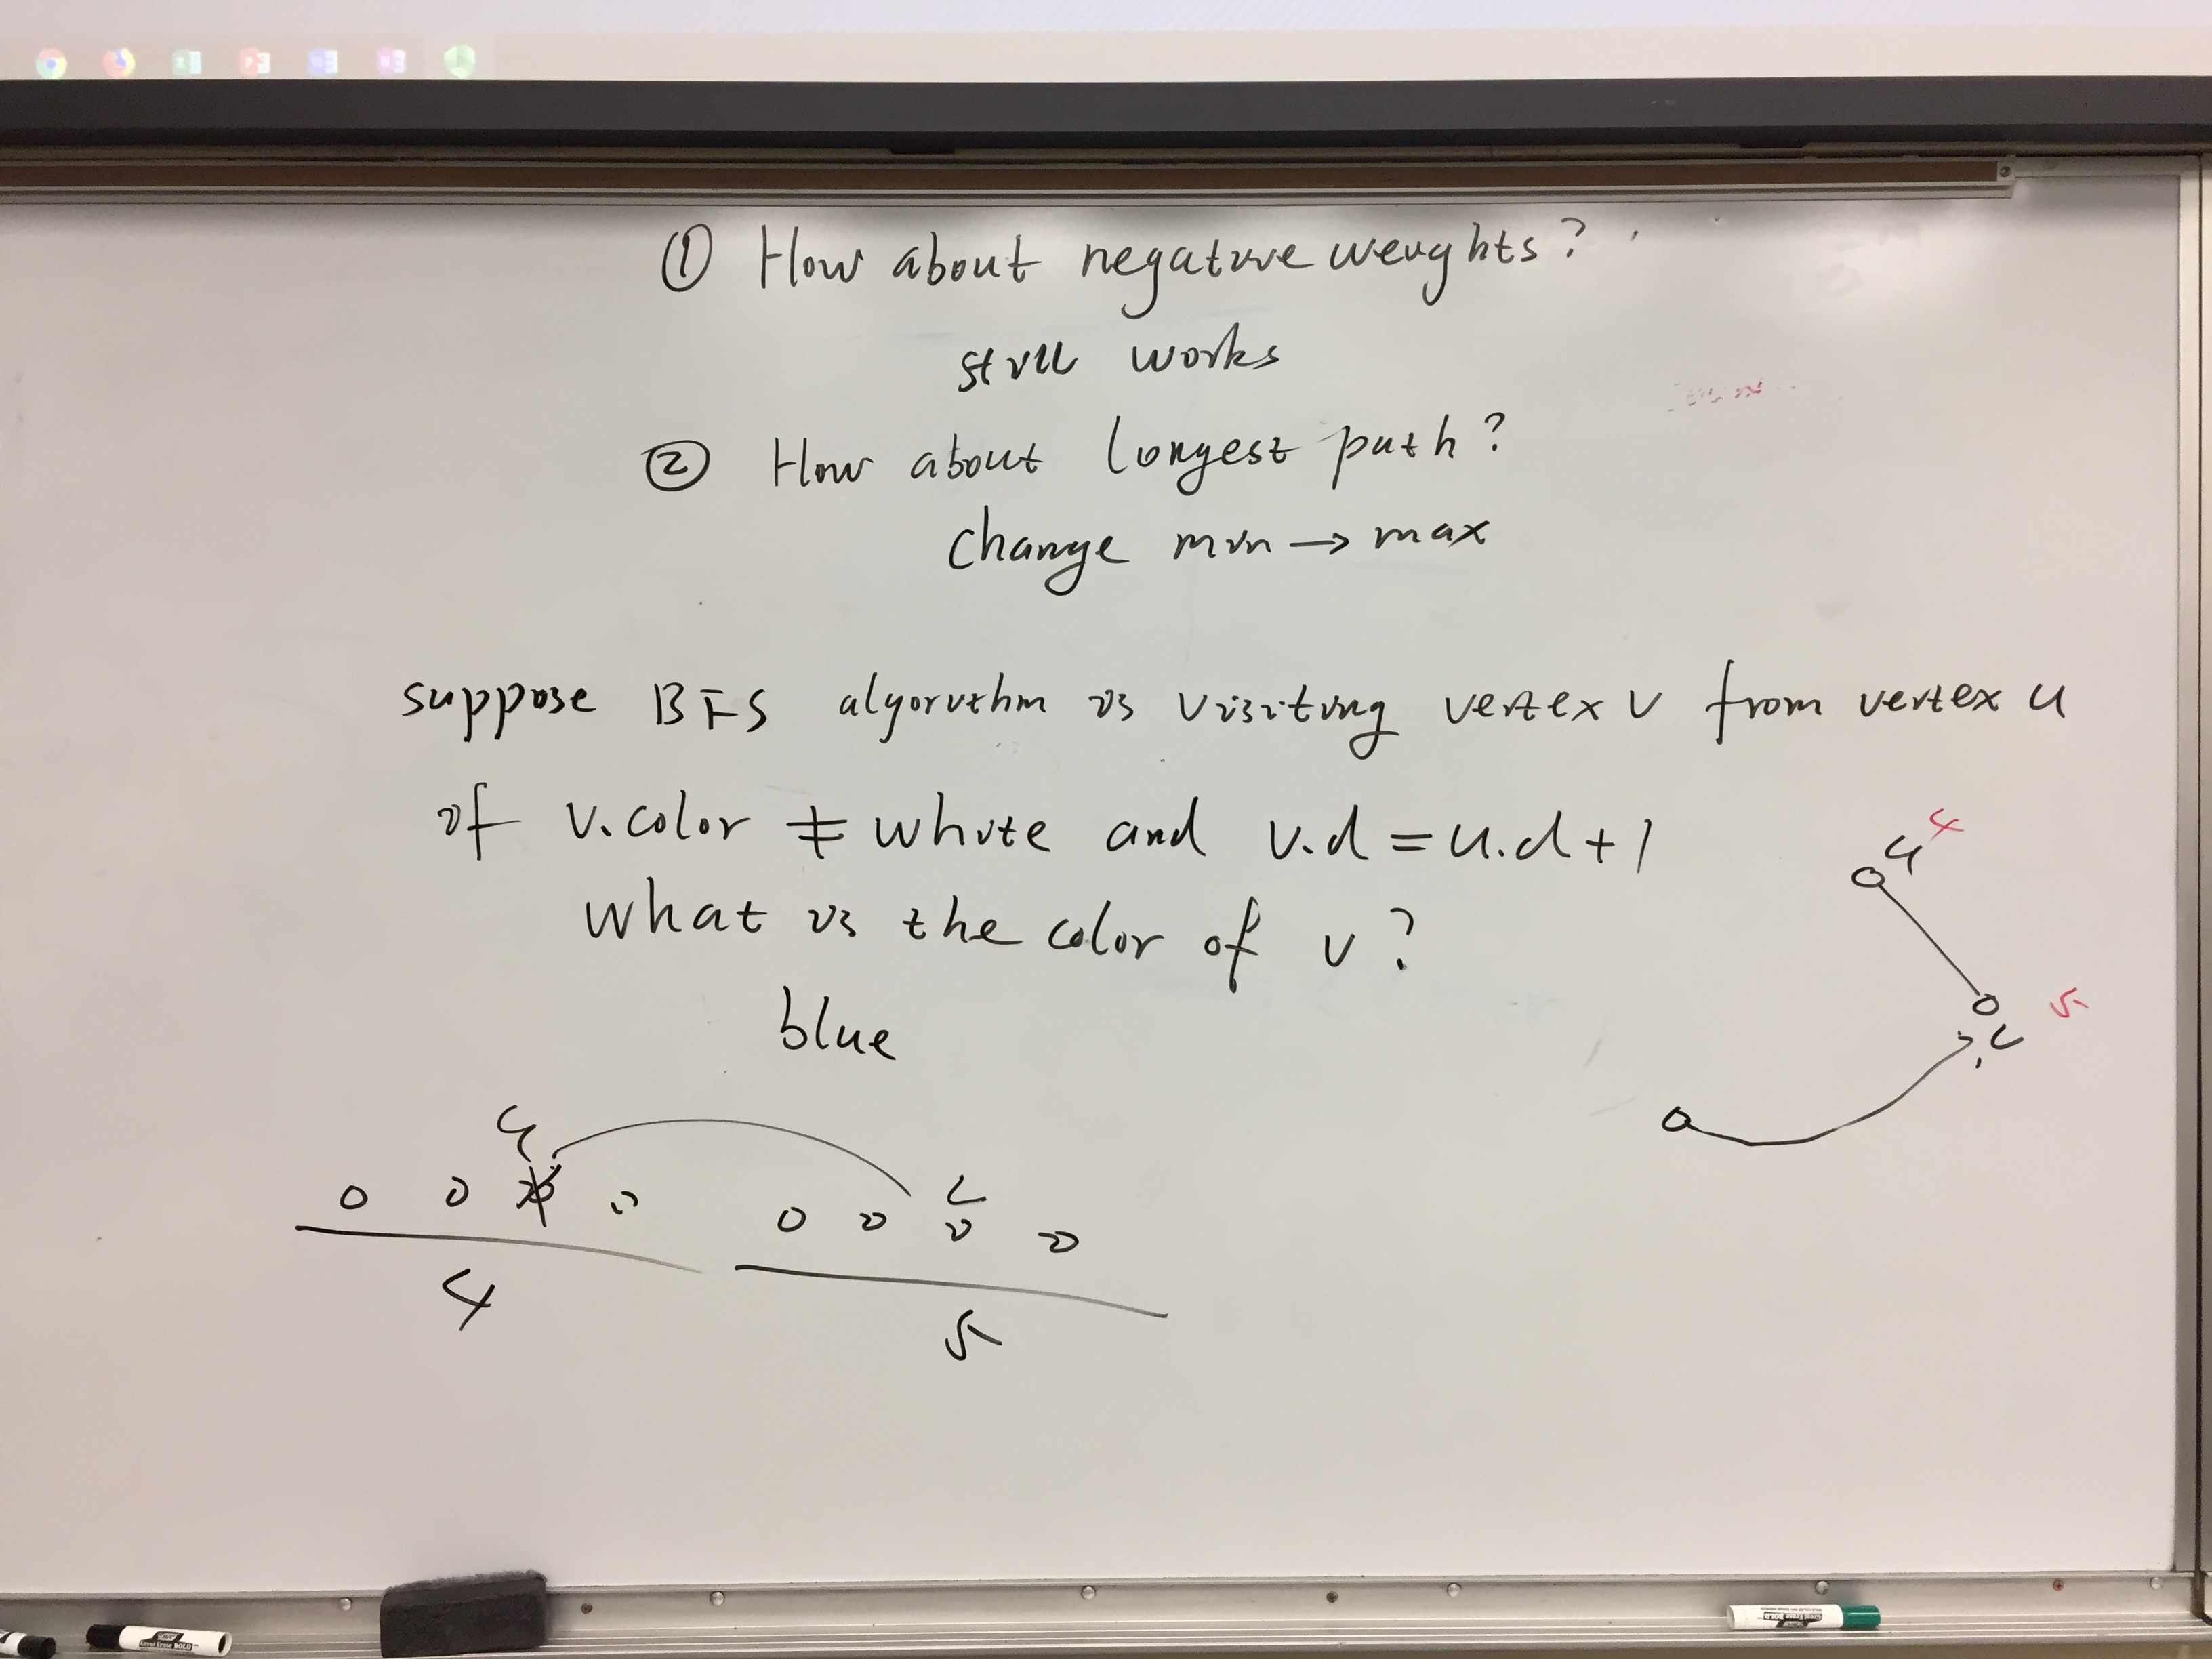 ① How about negative weights?
still works
② How about longest path?
change min → max
suppose BFS algorithm is visiting vertex v from vertex u
if v.color ≠ white and v.d = u.d + 1
what is the color of v?
blue
u 4
5
v
u
v
4
5